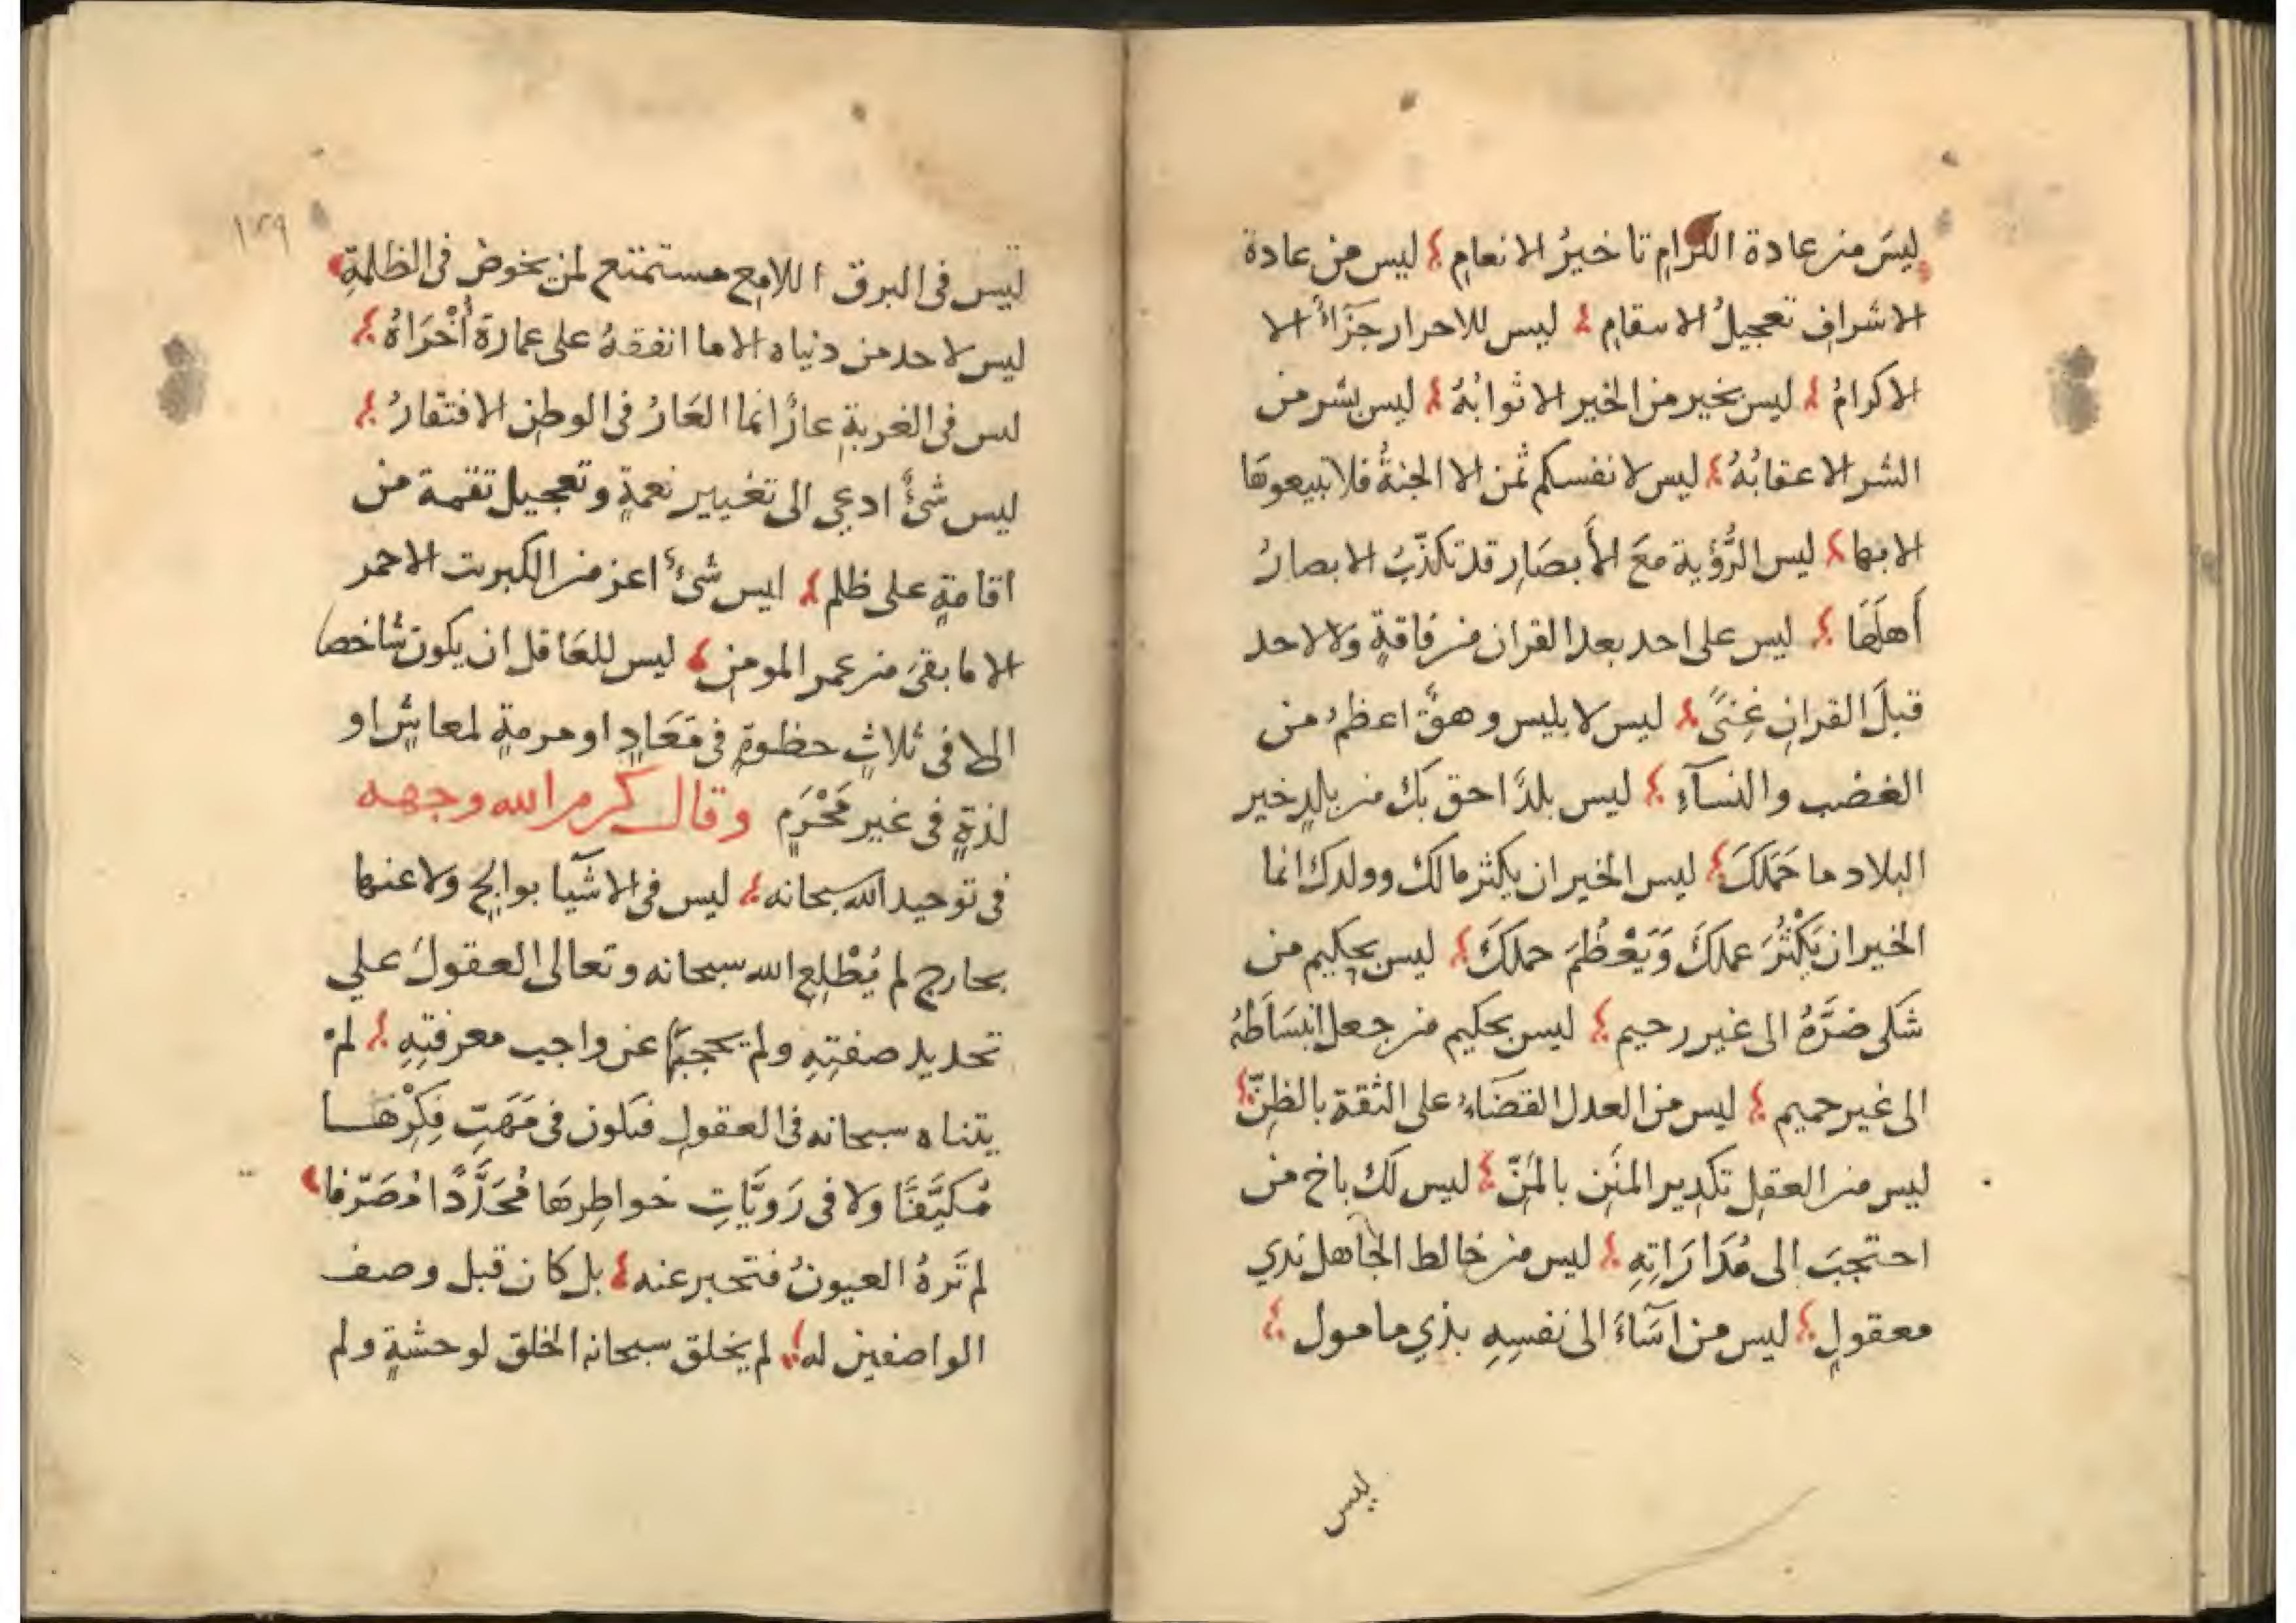 ليسَ من عادة الكرامِ تاخيرُ الانعامِ ليس من عادة
الاشرافِ تعجيلُ الاسقامِ ليس للاحرار جَزَاءٌ الا
الاكرامُ ليس بخير من الخير الا ثوابُهُ ليس بشر من
الشر الا عقابُهُ ليس لانفسكم ثمن الا الجنةُ فلا تبيعوهَا
الا بها ليس الرُّؤية معَ الأبصَارِ قد تكذّبُ الابصارُ
أَهلَهَا ليس على احد بعد القران من فاقةٍ ولا لاحد
قبلَ القرانِ غِنىً ليس لابليس وهقٌ اعظمُ من
الغضب والنسآءِ ليس بلدٌ احق بك من بلدٍ خير
البلاد ما حَمَلَكَ ليس الخير ان يكثر مالك وولدك انما
الخير ان يَكْثُرَ عملكَ وَيَعْظُمَ حملكَ ليس بحكيم من
شكى ضرَّهُ الى غير رحيم ليس بحكيم من جعل انبسَاطَهُ
الى غير حميم ليس من العدل القضَاءُ على الثقة بالظنّ
ليس من العقلِ تكدير المنَنِ بالمَنّ ليس لك باخ من
احتجبَ الى مُدَارَاتِهِ ليس من خالط الجاهل بذي
معقولٍ ليس من اسَآءَ الى نفسِهِ بذي مامول
ليس
١٢٩
ليس فى البرق اللامِعِ مستمتع لمن يخوض فى الظلمةِ
ليس لاحد من دنياه الا ما انفقهُ على عمارة أُخْرَاهُ
ليس فى الغربةِ عارٌ انما العَارُ فى الوطنِ الافتقارُ
ليس شئٌ ادعي الى تغيير نعمةٍ وتعجيل نقمة من
اقامةٍ على ظلم ليس شئٌ اعز من الكبريت الاحمر
الا ما بقىَ من عمر المومنِ ليس للعَاقل ان يكون شاخصا
الا فى ثلاثٍ حظوةٍ فى مَعَادٍ او مرمةٍ لمعاشٍ او
لذةٍ فى غير مَحْرَمٍ وقال كرم الله وجهه
فى توحيد الله سبحانه ليس فى الاشيآ بوالجٍ ولا عنها
بخارج لم يُطْلِعِ الله سبحانه وتعالى العقولَ علي
تحديد صفتِهِ ولم يحجبها عن واجب معرفتِهِ لم
يتناه سبحانه فى العقولِ فيكون فى مَهَبّ فِكْرِهَا
مُكيَّفًا ولا فى رَويَّاتِ خواطِرِهَا مُحَدَّدًا مُصَرّفا
لم تَرهُ العيونُ فتخبر عنه بل كان قبل وصف
الواصفين له لم يخلق سبحانه الخلق لوحشةٍ ولم